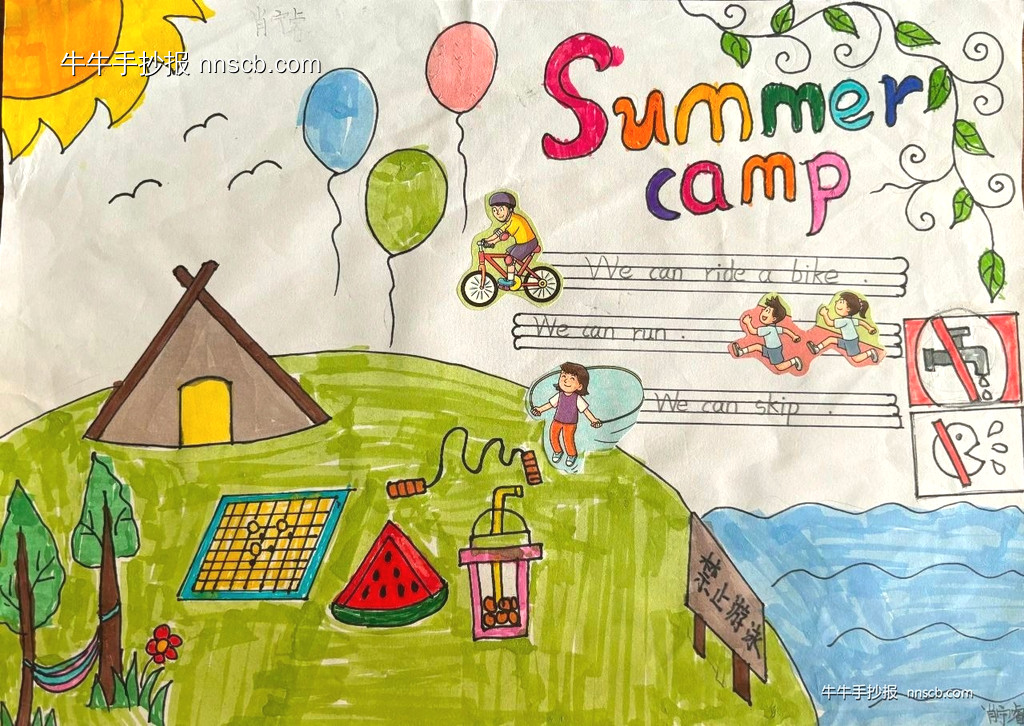 牛牛手抄报 nnscb.com
Summer
camp
We can ride a bike .
We can run .
We can skip .
禁止游泳
牛牛手抄报 nnscb.com